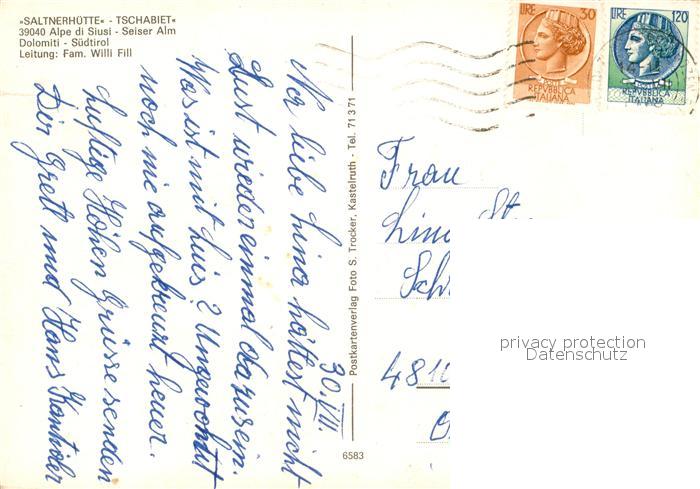 »SALTNERHÜTTE« - »TSCHABIET«
39040 Alpe di Siusi - Seiser Alm
Dolomiti - Südtirol
Leitung: Fam. Willi Fill
LIRE 30
REPVBBLICA
ITALIANA
LIRE 120
REPVBBLICA
ITALIANA
30. VIII
Na liebe Lina hättest nicht
Lust wieder einmal dazusein.
Was ist mit Luis? Ungewohnt
noch nie aufgekreuzt heuer.
Luftige Höhen Grüsse senden
Dir Gretl und Hans
Postkartenverlag Foto S. Trocker, Kastelruth - Tel. 71 3 71
6583
Frau
privacy protection
Datenschutz